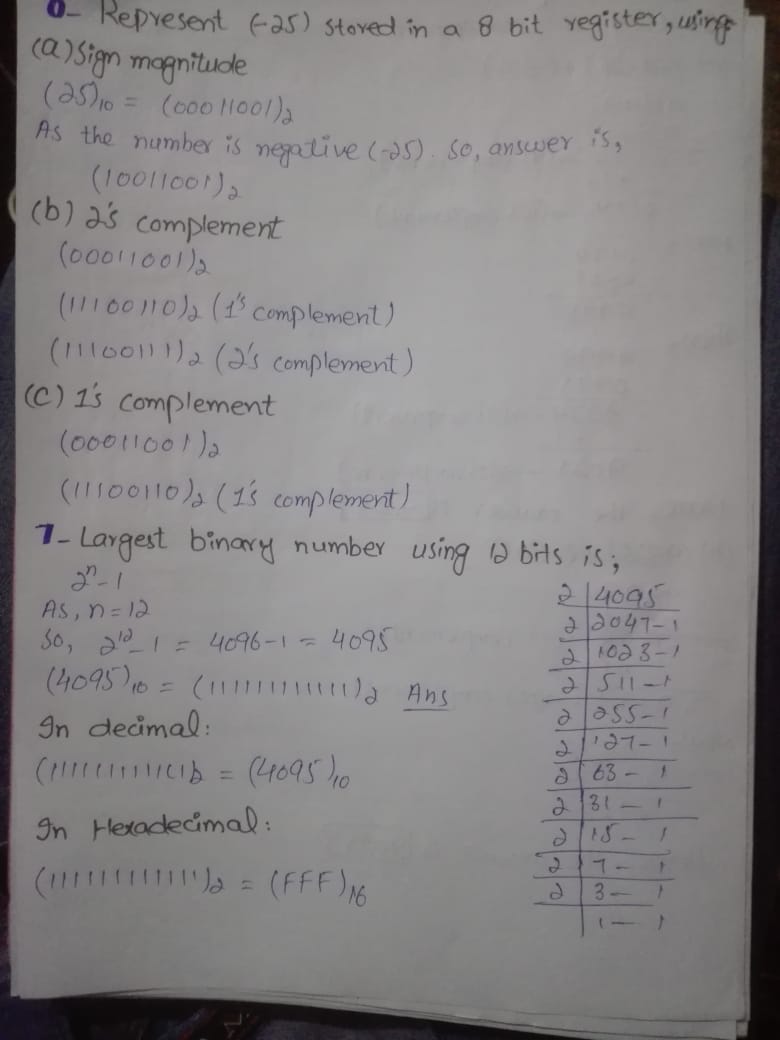 6- Represent (-25) stored in a 8 bit register, using
(a) Sign magnitude
(25)10 = (00011001)2
As the number is negative (-25). So, answer is,
(10011001)2
(b) 2's complement
(00011001)2
(11100110)2 (1's complement)
(11100111)2 (2's complement)
(C) 1's complement
(00011001)2
(11100110)2 (1's complement)
7- Largest binary number using 12 bits is;
2ⁿ-1
As, n=12
So, 2¹²-1 = 4096-1 = 4095
(4095)10 = (111111111111)2 Ans
In decimal:
(111111111111)2 = (4095)10
In Hexadecimal:
(111111111111)2 = (FFF)16
2 | 4095
2 | 2047-1
2 | 1023-1
2 | 511-1
2 | 255-1
2 | 127-1
2 | 63-1
2 | 31-1
2 | 15-1
2 | 7-1
2 | 3-1
| 1-1